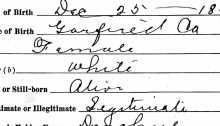 of Birth Dec 25 18
e of Birth Garfield Ca
Female
(b) White
or Still-born Alive
timate or Illegitimate Legitimate